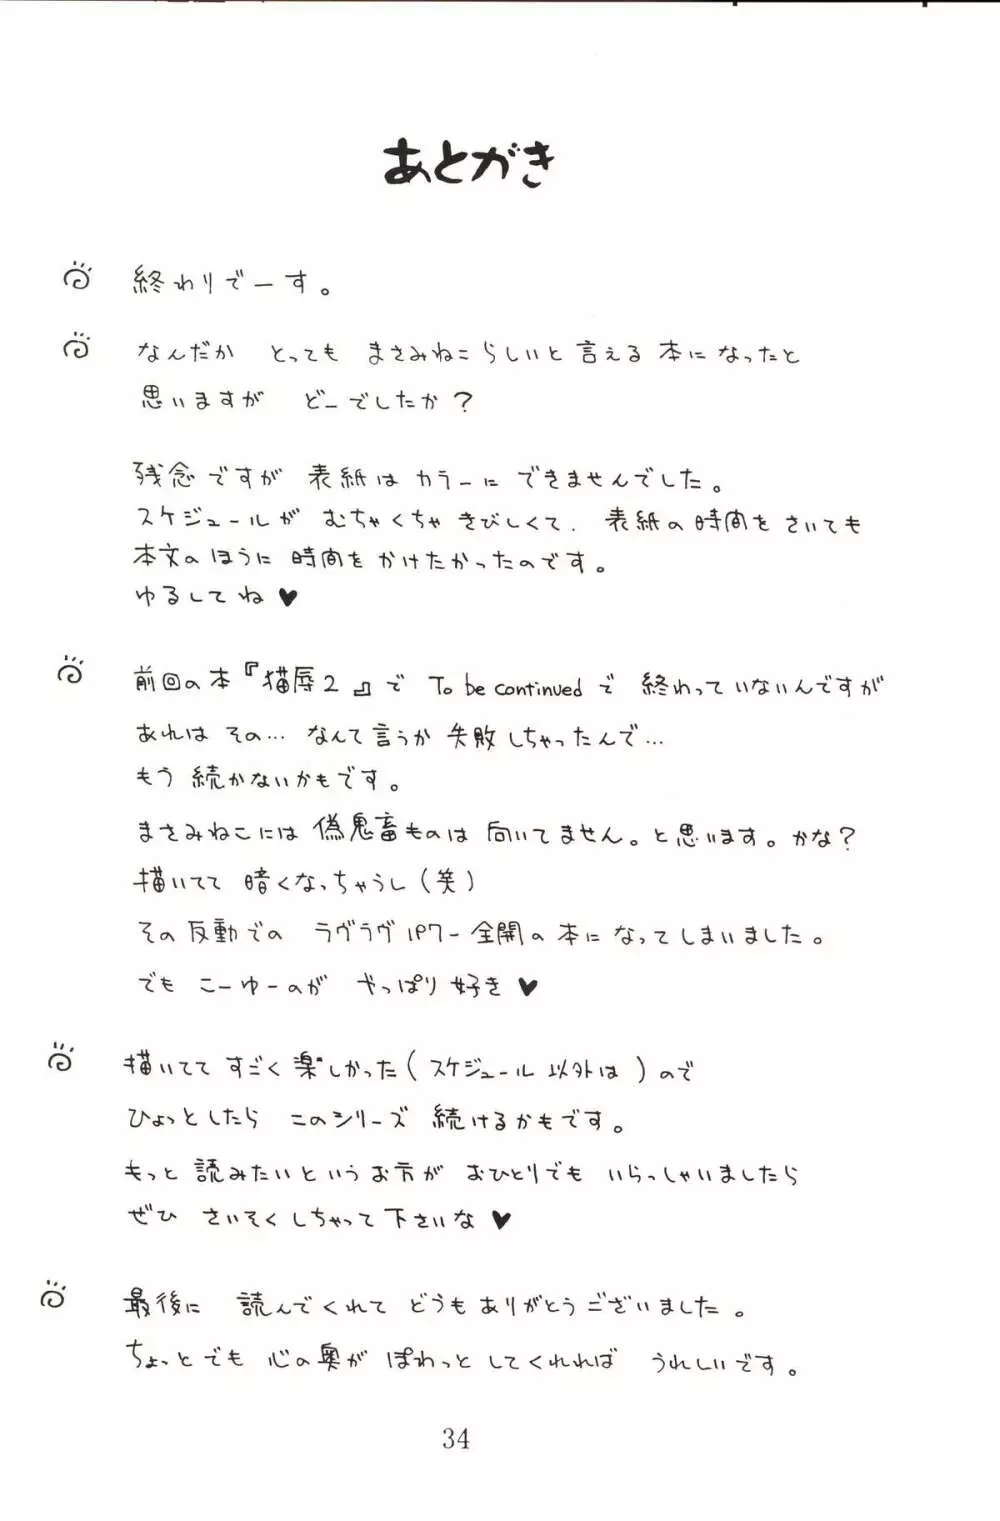 あとがき
終わりでーす。
なんだか とっても まさみねこらしいと 言える 本になったと
思いますが どーでしたか？
残念ですが 表紙は カラーに できませんでした。
スケジュールが むちゃくちゃ きびしくて、表紙の時間を さいても
本文の ほうに 時間を かけたかったのです。
ゆるしてね♥
前回の本『猫辱2』で To be continued で 終わっていないんですが
あれは その… なんて言うか 失敗しちゃったんで…
もう 続かないかもです。
まさみねこには 偽鬼畜ものは 向いてません。と思います。かな？
描いてて 暗くなっちゃうし（笑）
その反動での ラヴラヴパワー全開の 本に なってしまいました。
でも こーゆーのが やっぱり 好き♥
描いてて すごく 楽しかった（スケジュール以外は）ので
ひょっとしたら このシリーズ 続けるかもです。
もっと 読みたいというお方が おひとりでも いらっしゃいましたら
ぜひ さいそくしちゃって 下さいな♥
最後に 読んでくれて どうもありがとうございました。
ちょっとでも 心の奥が ぽわっと してくれれば うれしいです。
34